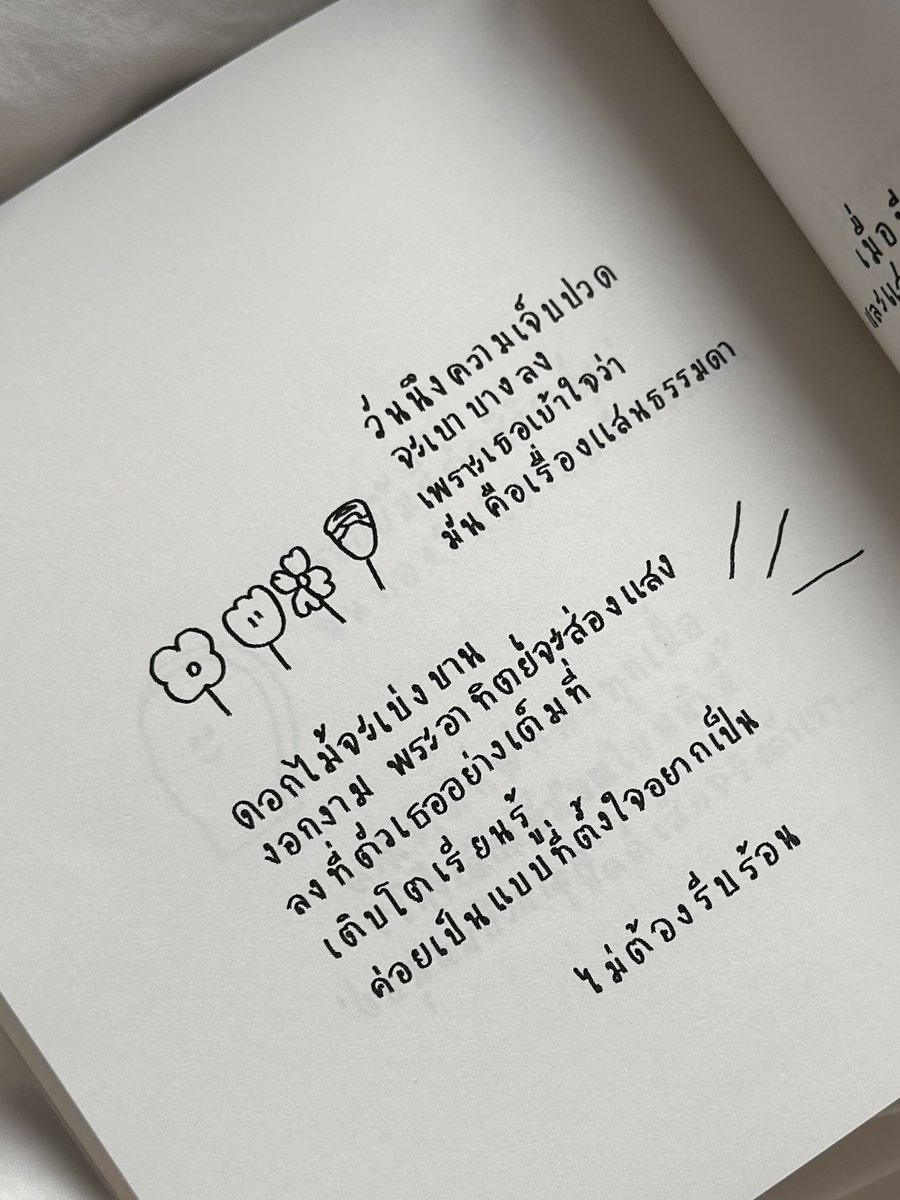 วันนึงความเจ็บปวด
จะเบาบางลง
เพราะเธอเข้าใจว่า
มันคือเรื่องแสนธรรมดา
ดอกไม้จะเบ่งบาน
งอกงาม พระอาทิตย์จะส่องแสง
ลงที่ตัวเธออย่างเต็มที่
เติบโตเรียนรู้
ค่อยเป็นแบบที่ตั้งใจอยากเป็น
ไม่ต้องรีบร้อน